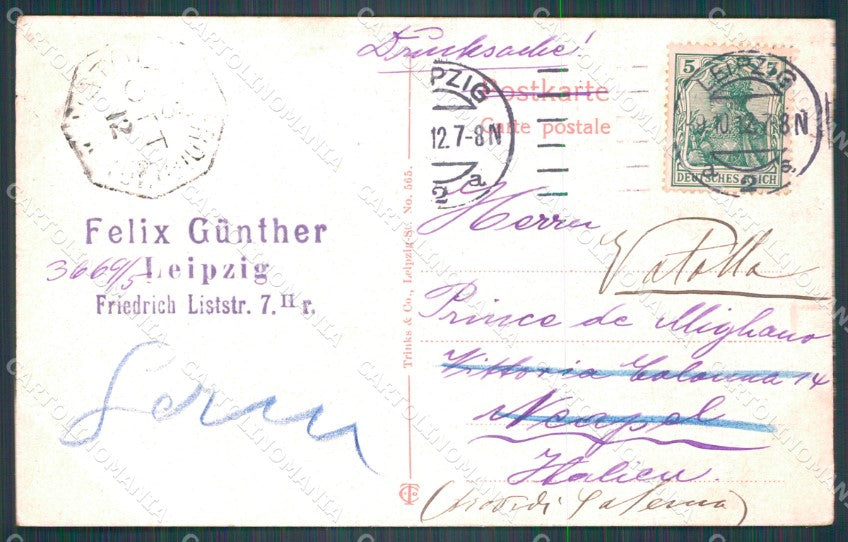 Drucksache!
Postkarte
Carte postale
LEIPZIG
12.7-8N
2
a
5
5
DEUTSCHES REICH
LEIPZIG
9.10.12.7-8N
2
OTT
12
Felix Günther
3669/5 Leipzig
Friedrich Liststr. 7. II r.
Trinks & Co., Leipzig No. 565.
Herrn
Vatolla
Prince de Migliano
Vittoria Colonna 14
Neapel
Italien.
CARTOLINOMANIA